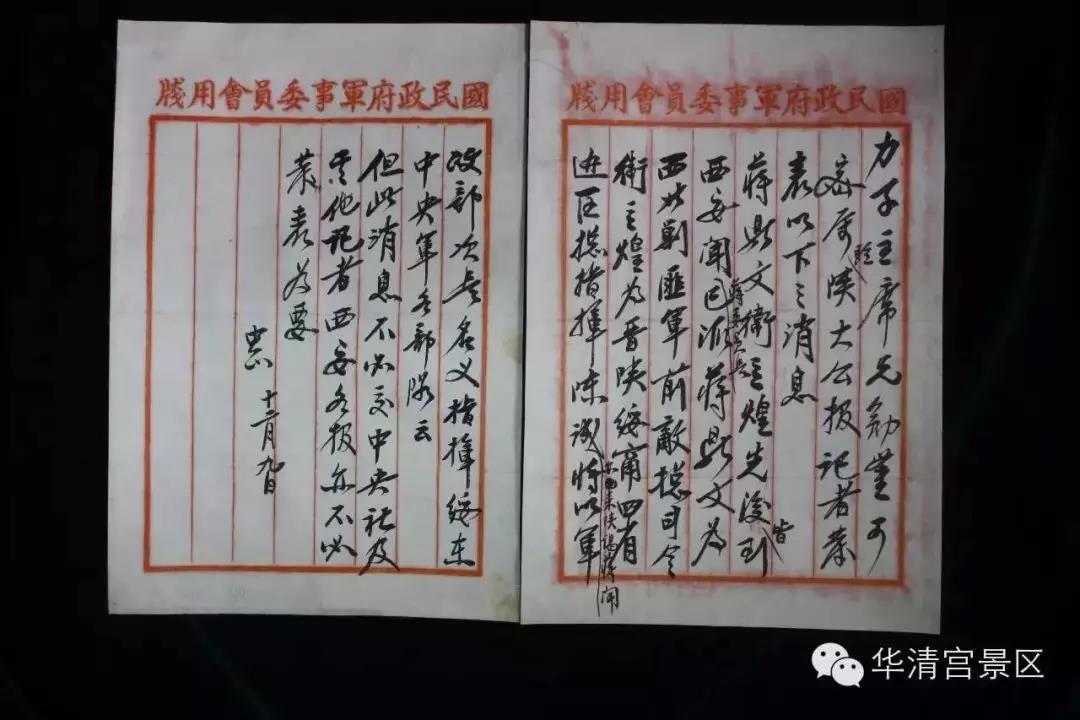 國民政府軍事委員會用牋
力子主席兄勛鑒可
密屬駐陝大公報記者發
表以下之消息
蔣鼎文衛立煌先後皆到
西安聞蔣委員長已派蔣鼎文為
西北剿匪軍前敵總司令
衛立煌為晉陝綏甯四省
边区總指揮陳誠亦由來陝謁蔣聞將以軍
國民政府軍事委員會用牋
政部次長名义指揮綏东
中央軍各部隊云
但此消息不必交中央社及
其他記者西安各报亦不必
發表為要
中正 十二月九日
华清宫景区